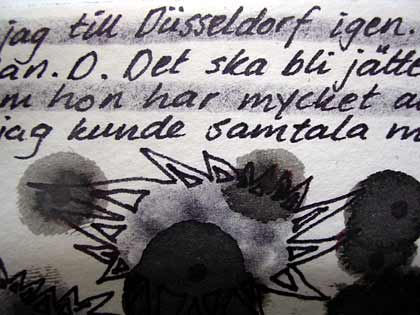 jag till Düsseldorf igen.
an. D. Det ska bli jätte
m hon har mycket a
jag kunde samtala m